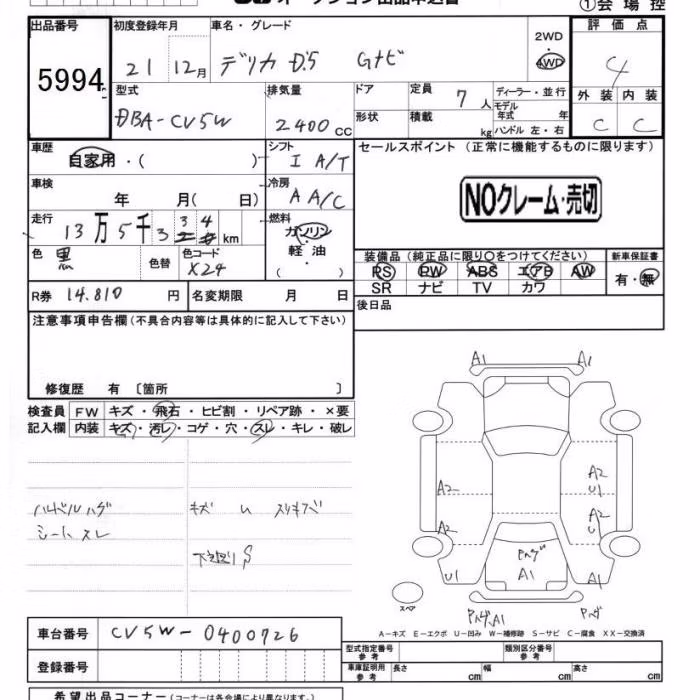 オークション出品申込書
①会場控
出品番号 初度登録年月 車名・グレード 2WD・4WD 評価点
5994 21 12月 デリカ D:5 Gナビ 4
型式 排気量 ドア 定員 7人 ディーラー・並行 外装 内装
DBA-CV5W 2400cc 形状 積載 kg モデル年式 年 ハンドル 左・右 C C
車歴 シフト セールスポイント (正常に機能するものに限ります)
自家用・( ) I A/T
車検 冷房 NOクレーム・売切
年 月( 日) A A/C
走行 燃料
13万5千334km ガソリン
色 黒 色替 色コード X24 軽油 ( )
装備品 (純正品に限り○をつけてください) 新車保証書
PS PW ABS エアB AW 有・無
SR ナビ TV カワ
R券 14.810円 名変期限 月 日 後日品
注意事項申告欄(不具合内容等は具体的に記入して下さい)
修復歴 有 〔箇所 〕
検査員 FW キズ・飛石・ヒビ割・リペア跡・×要
記入欄 内装 キズ・汚レ・コゲ・穴・スレ・キレ・破レ
A1 A1
A2 A2 U1
A2 A2 U
ハンドルハゲ キズ
シートスレ
下廻りS
Pハゲ
U1 A1 A1
スペア
Pハゲ.A1 Pハゲ
A-キズ E-エクボ U-凹み W-補修跡 S-サビ C-腐食 XX-交換済
車台番号 CV5W-0400726
型式指定番号 参考 類別区分番号 参考
登録番号 車庫証明用 参考 長さ cm 幅 cm 高さ cm
希望出品コーナー(コーナーは各会場により異なります。)